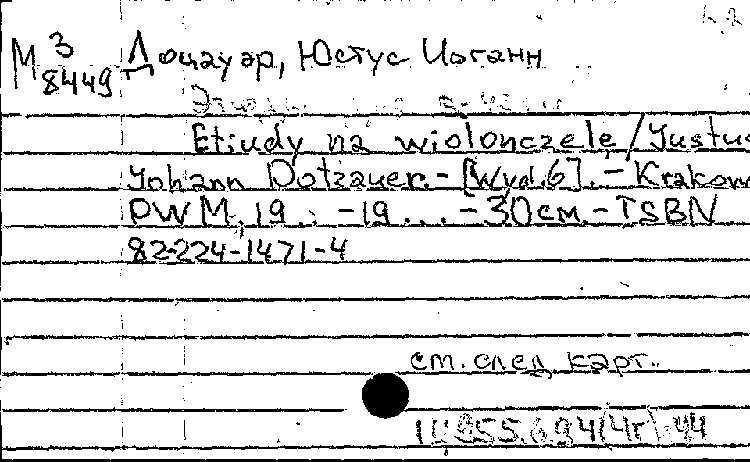 М 3
8449
Доцауэр, Юстус Иоганн
Etiudy na wiolonczelę / Justus
Johann Dotzauer. - [Wyd. 6]. - Krakow
PWM, 19.. - 19... - 30 см. - ISBN
82-224-1471-4
см. след. карт.